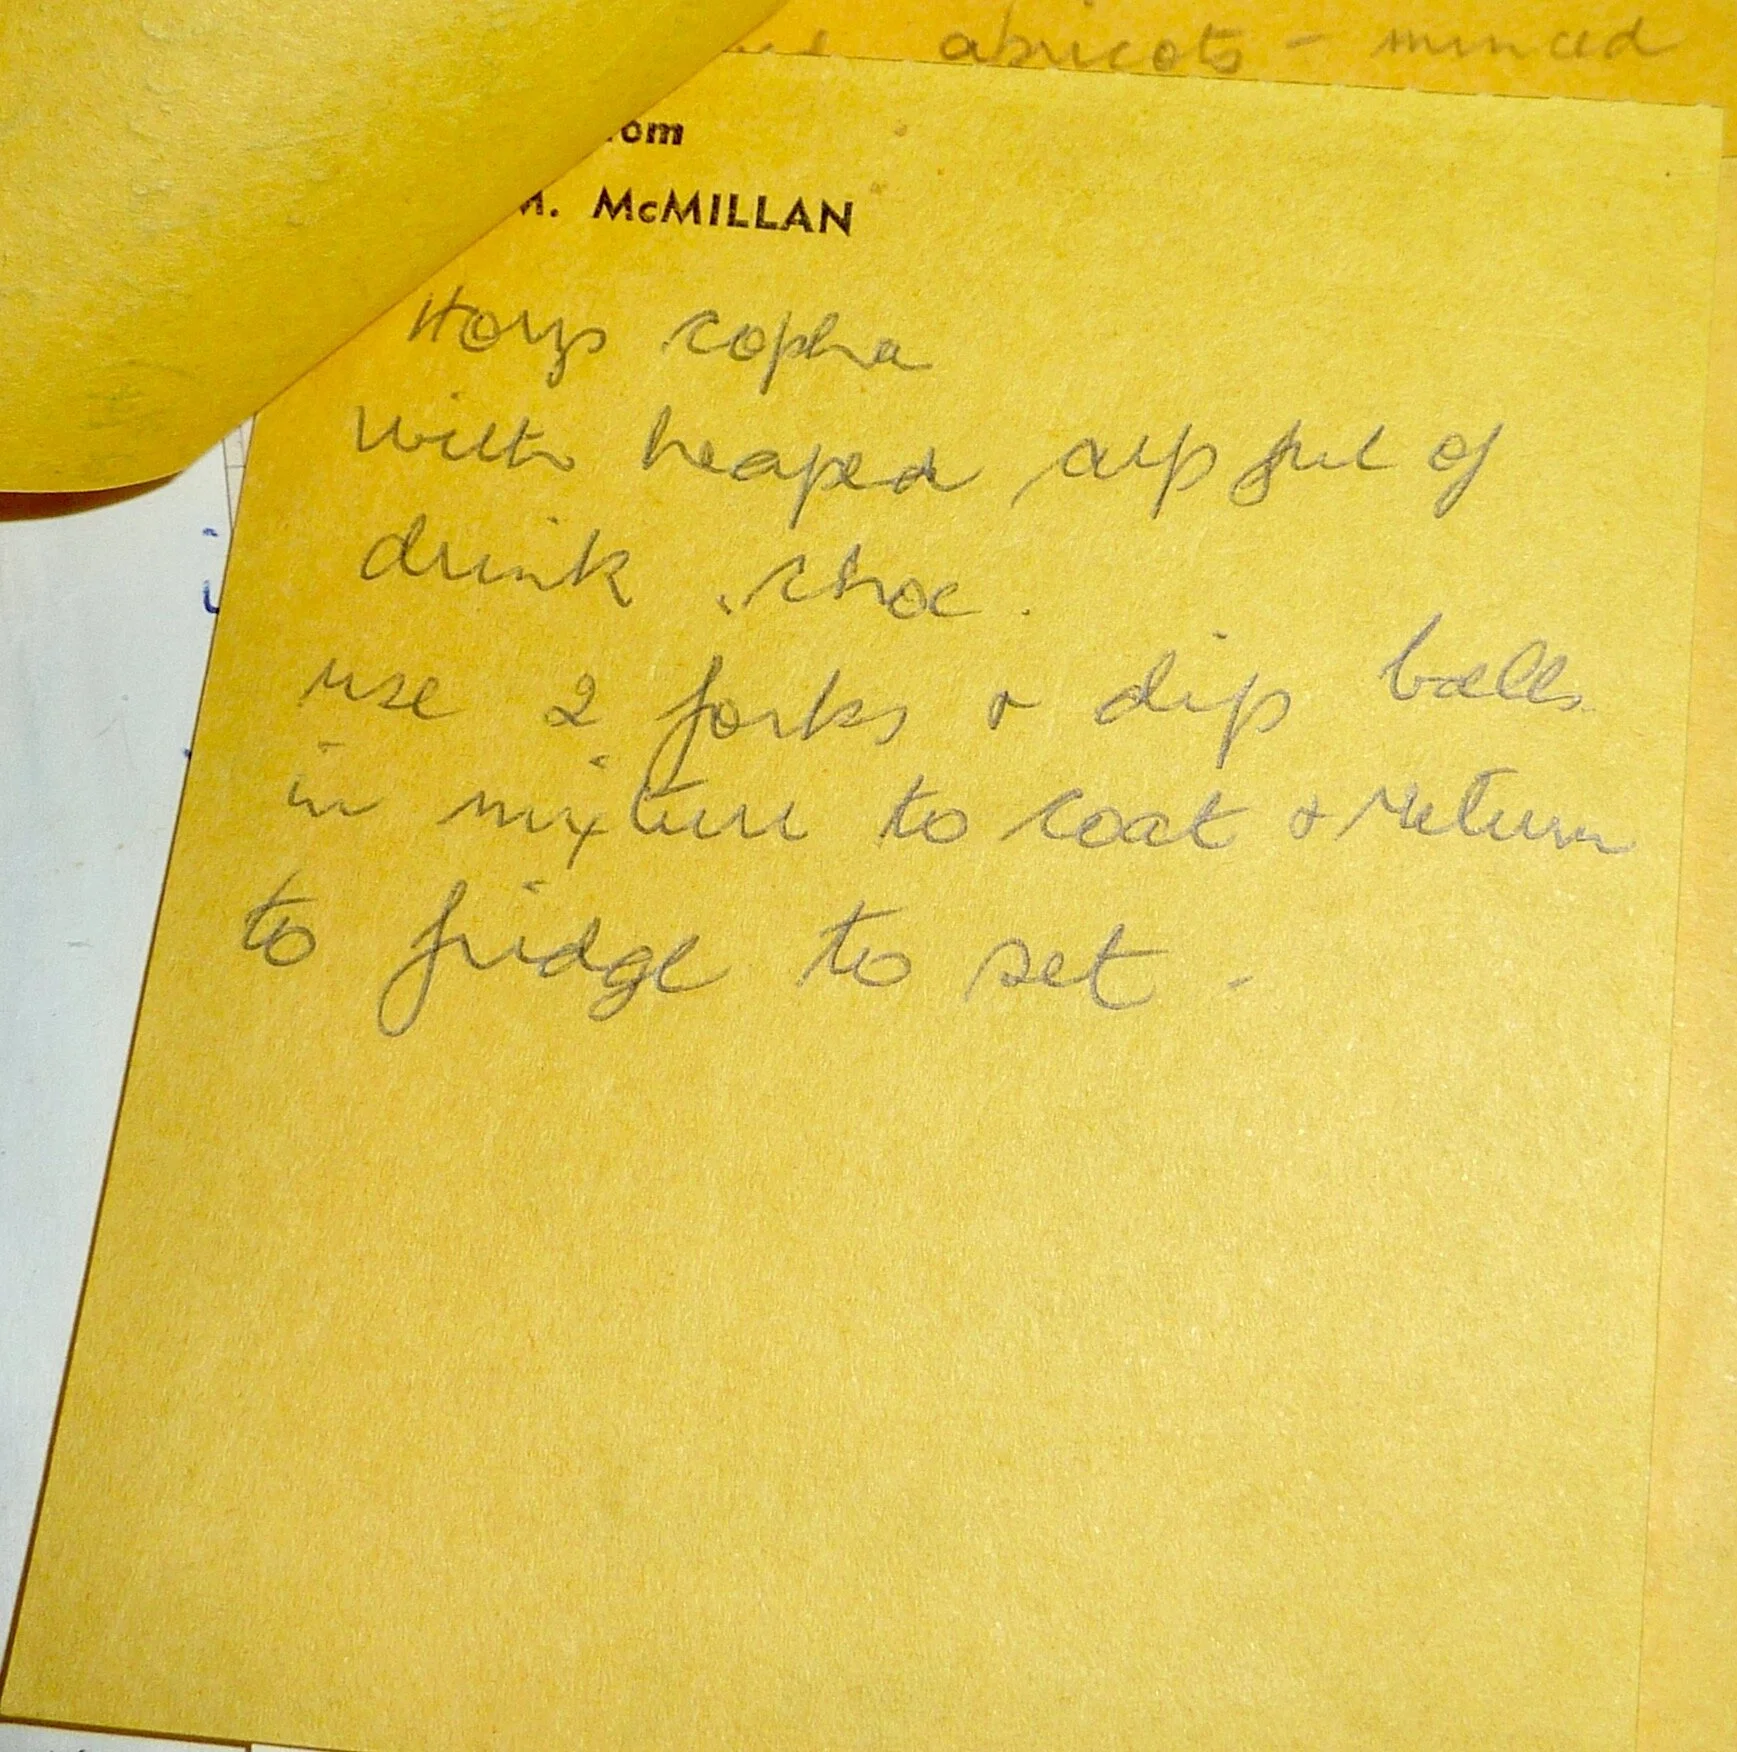 abricots - minced
om
M. McMILLAN
4ozs copha
with heaped cupful of
drink choc.
use 2 forks & dip balls
in mixture to coat & return
to fridge to set -